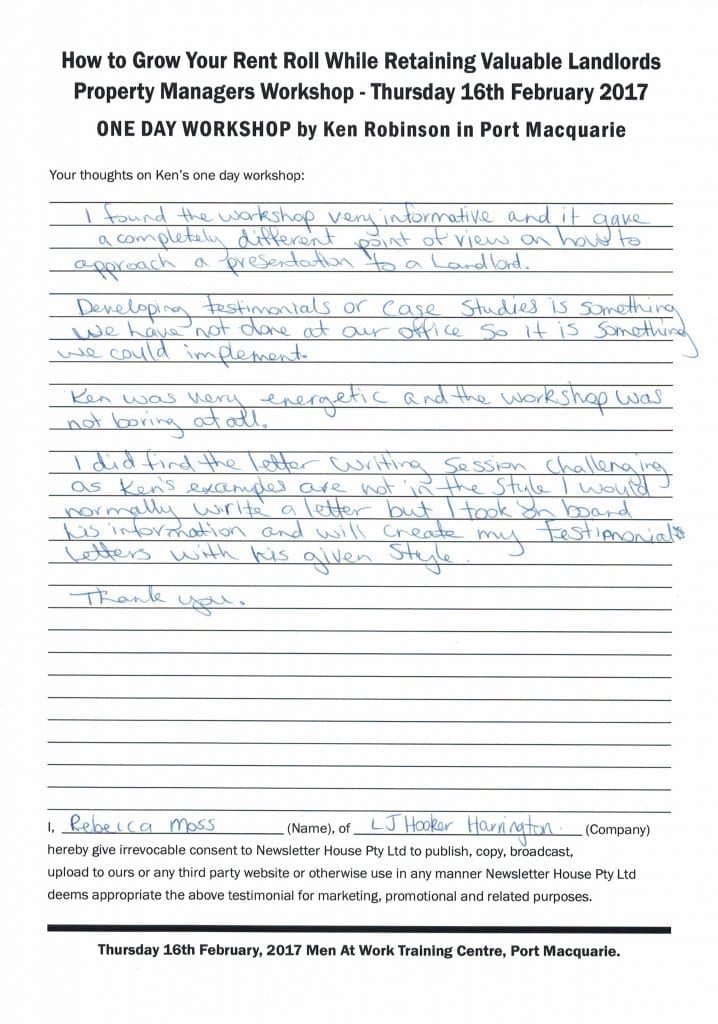 How to Grow Your Rent Roll While Retaining Valuable Landlords
Property Managers Workshop - Thursday 16th February 2017
ONE DAY WORKSHOP by Ken Robinson in Port Macquarie
Your thoughts on Ken's one day workshop:
I found the workshop very informative and it gave
a completely different point of view on how to
approach a presentation to a Landlord.
Developing testimonials or case studies is something
we have not done at our office so it is something
we could implement.
Ken was very energetic and the workshop was
not boring at all.
I did find the letter writing session challenging
as Ken's examples are not in the style I would
normally write a letter but I took on board
his information and will create my testimonials
letters with his given style.
Thank you.
I, Rebecca Moss (Name), of LJ Hooker Harrington. (Company)
hereby give irrevocable consent to Newsletter House Pty Ltd to publish, copy, broadcast,
upload to ours or any third party website or otherwise use in any manner Newsletter House Pty Ltd
deems appropriate the above testimonial for marketing, promotional and related purposes.
Thursday 16th February, 2017 Men At Work Training Centre, Port Macquarie.